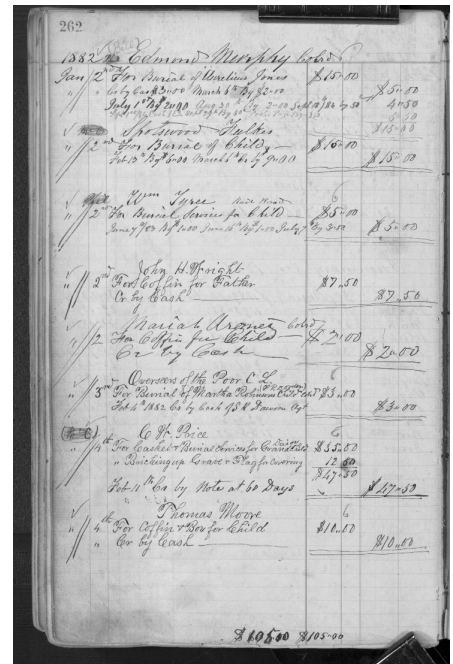 262
1882 Edmond Murphy Cold
Jan 2nd For Burial of Aurelius Jones $15-00
" Cr by Cash $3-00 March 6th By $2-00 $5-00
July 1st By $2-00 Aug 30th By 2-00 Sept 18/84 by 50 4-50
5-50
$15-00
Spotswood
" 2nd For Burial of Child $15-00
Feb 13th By $6-00 March 6th Cr by 9-00 $15-00
Wm Tyree
2nd For Burial Services for Child $5-00
June 7th 83 By $1-00 June 16th By 1-00 July 7th By 3-00 $5-00
John H. Wright
" 2nd For Coffin for Father $7.50
Cr by Cash $7.50
Mariah Cold
" 2 For Coffin for Child $2-00
Cr by Cash $2-00
Overseers of the Poor C L
" 3rd For Burial of Martha Child $3-00
Feb 4th 1882 Cr by Cash of Dawson Agt $3-00
C W Price
" 4th For Casket & Burial Services for Grand $35-00
" Bricking up Grave & Flag for Covering 12 50
$47-50
Feb 11th Cr by Note at 60 Days $47-50
Thomas Moore
" 4th For Coffin & Box for Child $10-00
" Cr by Cash $10-00
$105-00 $105-00